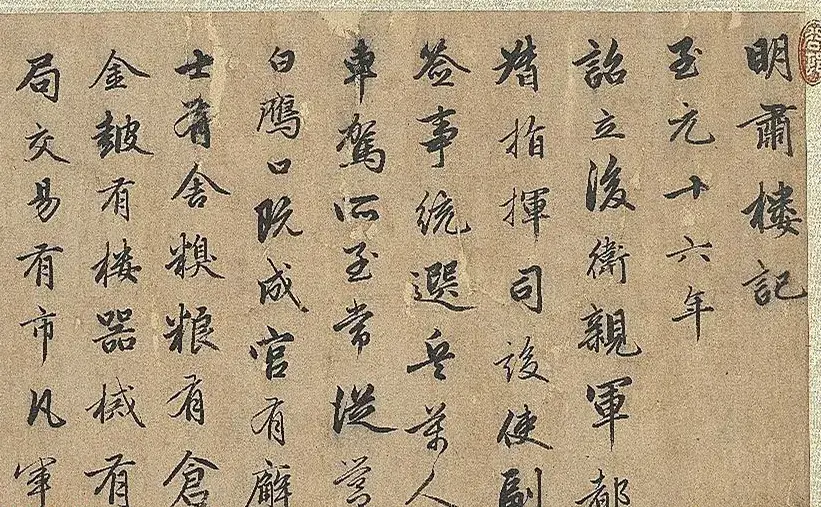 明肅楼記
至元十六年
詔立後衛親軍都
指揮司設使副
签事統選兵萬人
車駕所至常從營
白鴈口既成官有廨
士有舍糗粮有倉
金皷有楼器械有
局交易有市凡軍